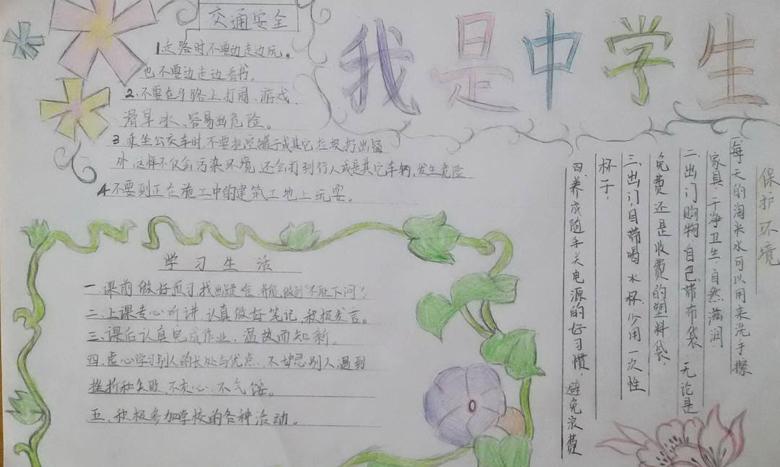 我是中学生
交通安全
1.走路时不要边走边玩。
也不要边走边看书。
2.不要在马路上打闹、游戏、
滑旱冰、容易出危险。
3.乘坐公交车时不要把瓜子或其它垃圾扔出窗
外.这样不仅会污染环境,还会打到行人或是其它车辆,发生危险
4.不要到正在施工中的建筑工地上玩耍。
保护环境
一.每天的淘米水可以用来洗手擦
家具,干净卫生.自然滋润
二.出门购物,自己带布袋,无论是
免费还是收费的塑料袋.
三.出门自带喝水杯少用一次性
杯子.
四.养成随手关电源的好习惯,避免浪费
学习生活
一.课前做好预习找出疑
二.上课专心听讲,认真做好笔记,积极发言。
三.课后认真完成作业,温故而知新。
四.虚心学习别人的长处与优点,不妒忌别人.遇到
挫折和失败,不灰心、不气馁。
五.积极参加学校的各种活动。